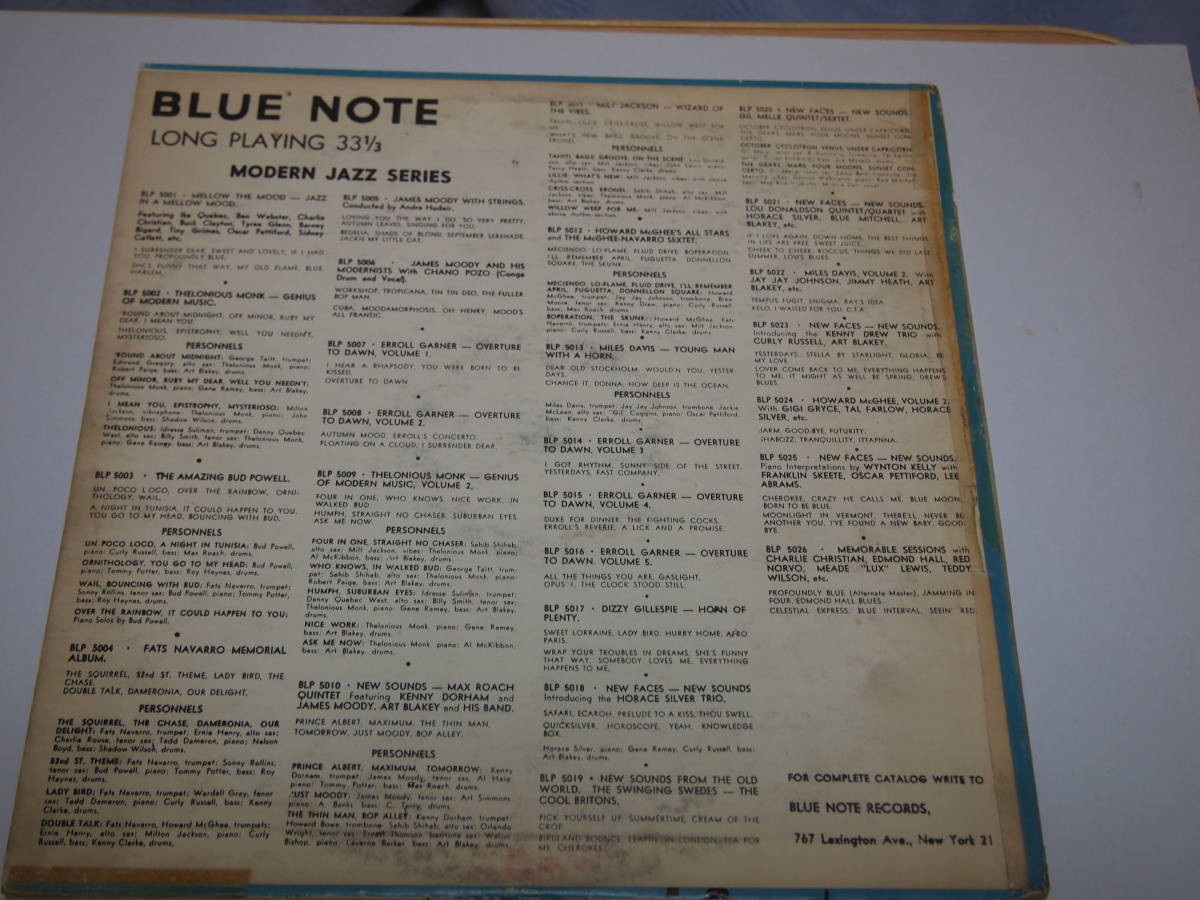 BLUE NOTE
LONG PLAYING 33⅓
MODERN JAZZ SERIES
BLP 5001 · MELLOW THE MOOD — JAZZ
IN A MELLOW MOOD.
Featuring Ike Quebec, Ben Webster, Charlie
Christian, Buck Clayton, Tyree Glenn, Barney
Bigard, Tiny Grimes, Oscar Pettiford, Sidney
Catlett, etc.
I SURRENDER DEAR, SWEET AND LOVELY, IF I HAD
YOU, PROFOUNDLY BLUE.
SHE'S FUNNY THAT WAY, MY OLD FLAME, BLUE
HARLEM.
BLP 5002 · THELONIOUS MONK — GENIUS
OF MODERN MUSIC.
'ROUND ABOUT MIDNIGHT, OFF MINOR, RUBY MY
DEAR, I MEAN YOU.
THELONIOUS, EPISTROPHY, WELL YOU NEEDN'T,
MYSTERIOSO.
PERSONNELS
'ROUND ABOUT MIDNIGHT: George Taitt, trumpet;
Edmund Gregory, alto sax; Thelonious Monk, piano;
Robert Paige, bass; Art Blakey, drums.
OFF MINOR, RUBY MY DEAR, WELL YOU NEEDN'T:
Thelonious Monk, piano; Gene Ramey, bass; Art Blakey,
drums.
I MEAN YOU, EPISTROPHY, MYSTERIOSO: Milton
Jackson, vibraphone; Thelonious Monk, piano; John
Simmons, bass; Shadow Wilson, drums.
THELONIOUS: Idresse Suliman, trumpet; Danny Quebec
West, alto sax; Billy Smith, tenor sax; Thelonious Monk,
piano; Gene Ramey, bass; Art Blakey, drums.
BLP 5003 · THE AMAZING BUD POWELL.
UN POCO LOCO, OVER THE RAINBOW, ORNI-
THOLOGY, WAIL.
A NIGHT IN TUNISIA, IT COULD HAPPEN TO YOU,
YOU GO TO MY HEAD, BOUNCING WITH BUD.
PERSONNELS
UN POCO LOCO, A NIGHT IN TUNISIA: Bud Powell,
piano; Curly Russell, bass; Max Roach, drums.
ORNITHOLOGY, YOU GO TO MY HEAD: Bud Powell,
piano; Tommy Potter, bass; Roy Haynes, drums.
WAIL, BOUNCING WITH BUD: Fats Navarro, trumpet;
Sonny Rollins, tenor sax; Bud Powell, piano; Tommy Potter,
bass; Roy Haynes, drums.
OVER THE RAINBOW, IT COULD HAPPEN TO YOU:
Piano Solos by Bud Powell.
BLP 5004 · FATS NAVARRO MEMORIAL
ALBUM.
THE SQUIRREL, 52nd ST. THEME, LADY BIRD, THE
CHASE.
DOUBLE TALK, DAMERONIA, OUR DELIGHT.
PERSONNELS
THE SQUIRREL, THE CHASE, DAMERONIA, OUR
DELIGHT: Fats Navarro, trumpet; Ernie Henry, alto sax;
Charlie Rouse, tenor sax; Tadd Dameron, piano; Nelson
Boyd, bass; Shadow Wilson, drums.
52nd ST. THEME: Fats Navarro, trumpet; Sonny Rollins,
tenor sax; Bud Powell, piano; Tommy Potter, bass; Roy
Haynes, drums.
LADY BIRD: Fats Navarro, trumpet; Wardell Gray, tenor
sax; Tadd Dameron, piano; Curly Russell, bass; Kenny
Clarke, drums.
DOUBLE TALK: Fats Navarro, Howard McGhee, trumpets;
Ernie Henry, alto sax; Milton Jackson, piano; Curly
Russell, bass; Kenny Clarke, drums.
BLP 5005 · JAMES MOODY WITH STRINGS,
Conducted by Andre Hodeir.
LOVING YOU THE WAY I DO, SO VERY PRETTY,
AUTUMN LEAVES, SINGING FOR YOU.
BEDELIA, SHADE OF BLOND, SEPTEMBER SERENADE,
JACKIE MY LITTLE CAT.
BLP 5006 · JAMES MOODY AND HIS
MODERNISTS With CHANO POZO (Conga
Drum and Vocal).
WORKSHOP, TROPICANA, TIN TIN DEO, THE FULLER
BOP MAN.
CUBA, MOODAMORPHOSIS, OH HENRY, MOOD'S
ALL FRANTIC.
BLP 5007 · ERROLL GARNER — OVERTURE
TO DAWN, VOLUME 1.
I HEAR A RHAPSODY, YOU WERE BORN TO BE
KISSED.
OVERTURE TO DAWN.
BLP 5008 · ERROLL GARNER — OVERTURE
TO DAWN, VOLUME 2.
AUTUMN MOOD, ERROLL'S CONCERTO.
FLOATING ON A CLOUD, I SURRENDER DEAR.
BLP 5009 · THELONIOUS MONK — GENIUS
OF MODERN MUSIC, VOLUME 2.
FOUR IN ONE, WHO KNOWS, NICE WORK, IN
WALKED BUD.
HUMPH, STRAIGHT NO CHASER, SUBURBAN EYES,
ASK ME NOW.
PERSONNELS
FOUR IN ONE, STRAIGHT NO CHASER: Sahib Shihab,
alto sax; Milt Jackson, vibes; Thelonious Monk, piano;
Al McKibbon, bass; Art Blakey, drums.
WHO KNOWS, IN WALKED BUD: George Taitt, trum-
pet; Sahib Shihab, alto sax; Thelonious Monk, piano;
Robert Paige, bass; Art Blakey, drums.
HUMPH, SUBURBAN EYES: Idresse Suliman, trumpet;
Danny Quebec West, alto sax; Billy Smith, tenor sax;
Thelonious Monk, piano; Gene Ramey, bass; Art Blakey,
drums.
NICE WORK: Thelonious Monk, piano; Gene Ramey,
bass; Art Blakey, drums.
ASK ME NOW: Thelonious Monk, piano; Al McKibbon,
bass; Art Blakey, drums.
BLP 5010 · NEW SOUNDS — MAX ROACH
QUINTET Featuring KENNY DORHAM and
JAMES MOODY, ART BLAKEY and HIS BAND.
PRINCE ALBERT, MAXIMUM, THE THIN MAN.
TOMORROW, JUST MOODY, BOP ALLEY.
PERSONNELS
PRINCE ALBERT, MAXIMUM, TOMORROW: Kenny
Dorham, trumpet; James Moody, tenor sax; Al Haig,
piano; Tommy Potter, bass; Max Roach, drums.
JUST MOODY: James Moody, tenor sax; Art Simmons,
piano; A. Banks, bass; C. Terry, drums.
THE THIN MAN, BOP ALLEY: Kenny Dorham, trumpet;
Howard Bowe, trombone; Sahib Shihab, alto sax; Orlando
Wright, tenor sax; Ernest Thomson, baritone sax; Walter
Bishop, piano; Laverne Barker, bass; Art Blakey, drums.
BLP 5011 · MILT JACKSON — WIZARD OF
THE VIBES.
TAHITI, LILLIE, CRISS-CROSS, WILLOW WEEP FOR
ME.
WHAT'S NEW, BAGS' GROOVE, ON THE SCENE,
ERONEL.
PERSONNELS
TAHITI, BAGS' GROOVE, ON THE SCENE: Lou Donald-
son, alto sax; Milt Jackson, vibes; John Lewis, piano;
Percy Heath, bass; Kenny Clarke, drums.
LILLIE, WHAT'S NEW: Milt Jackson, vibes; with above
rhythm section.
CRISS-CROSS, ERONEL: Sahib Shihab, alto sax; Milt
Jackson, vibes; Thelonious Monk, piano; Al McKibbon,
bass; Art Blakey, drums.
WILLOW WEEP FOR ME: Milt Jackson, vibes; with
above rhythm section.
BLP 5012 · HOWARD McGHEE'S ALL STARS
and THE McGHEE-NAVARRO SEXTET.
MECIENDO, LO-FLAME, FLUID DRIVE, BOPERATION.
I'LL REMEMBER APRIL, FUGUETTA, DONNELLON
SQUARE, THE SKUNK.
PERSONNELS
MECIENDO, LO-FLAME, FLUID DRIVE, I'LL REMEMBER
APRIL, FUGUETTA, DONNELLON SQUARE: Howard
McGhee, trumpet; Jay Jay Johnson, trombone; Brew
Moore, tenor sax; Kenny Drew, piano; Curly Russell,
bass; Max Roach, drums.
BOPERATION, THE SKUNK: Howard McGhee, Fats
Navarro, trumpets; Ernie Henry, alto sax; Milt Jackson,
piano; Curly Russell, bass; Kenny Clarke, drums.
BLP 5013 · MILES DAVIS — YOUNG MAN
WITH A HORN.
DEAR OLD STOCKHOLM, WOULD'N YOU, YESTER-
DAYS.
CHANCE IT, DONNA, HOW DEEP IS THE OCEAN.
PERSONNELS
Miles Davis, trumpet; Jay Jay Johnson, trombone; Jackie
McLean, alto sax; "Gil" Coggins, piano; Oscar Pettiford,
bass; Kenny Clarke, drums.
BLP 5014 · ERROLL GARNER — OVERTURE
TO DAWN, VOLUME 3
I GOT RHYTHM, SUNNY SIDE OF THE STREET,
YESTERDAYS, FAST COMPANY.
BLP 5015 · ERROLL GARNER — OVERTURE
TO DAWN, VOLUME 4.
DUKE FOR DINNER, THE FIGHTING COCKS.
ERROLL'S REVERIE, A LICK AND A PROMISE.
BLP 5016 · ERROLL GARNER — OVERTURE
TO DAWN. VOLUME 5.
ALL THE THINGS YOU ARE, GASLIGHT,
OPUS 1, THE CLOCK STOOD STILL.
BLP 5017 · DIZZY GILLESPIE — HORN OF
PLENTY.
SWEET LORRAINE, LADY BIRD, HURRY HOME, AFRO
PARIS.
WRAP YOUR TROUBLES IN DREAMS, SHE'S FUNNY
THAT WAY, SOMEBODY LOVES ME, EVERYTHING
HAPPENS TO ME.
BLP 5018 · NEW FACES — NEW SOUNDS
Introducing the HORACE SILVER TRIO.
SAFARI, ECAROH, PRELUDE TO A KISS, THOU SWELL.
QUICKSILVER, HOROSCOPE, YEAH, KNOWLEDGE
BOX.
Horace Silver, piano; Gene Ramey, Curly Russell, bass;
Art Blakey, drums.
BLP 5019 · NEW SOUNDS FROM THE OLD
WORLD. THE SWINGING SWEDES — THE
COOL BRITONS.
PICK YOURSELF UP, SUMMERTIME, CREAM OF THE
CROP.
BIRDLAND BOUNCE, LEAPIN' IN LONDON, TEA FOR
ME, CHEROKEE.
BLP 5020 · NEW FACES — NEW SOUNDS.
GIL MELLE QUINTET/SEXTET.
OCTOBER, CYCLOTRON, VENUS, UNDER CAPRICORN.
THE GEARS, MARS, FOUR MOONS, SUNSET CON-
CERTO.
OCTOBER, CYCLOTRON, VENUS, UNDER CAPRICORN:
THE GEARS, MARS, FOUR MOONS, SUNSET CON-
BLP 5021 · NEW FACES — NEW SOUNDS.
LOU DONALDSON QUINTET/QUARTET with
HORACE SILVER, BLUE MITCHELL, ART
BLAKEY, etc.
IF I LOVE AGAIN, DOWN HOME, THE BEST THINGS
IN LIFE ARE FREE, SWEET JUICE.
CHEEK TO CHEEK, ROCCUS, THINGS WE DID LAST
SUMMER, LOU'S BLUES.
BLP 5022 · MILES DAVIS, VOLUME 2. With
JAY JAY JOHNSON, JIMMY HEATH, ART
BLAKEY, etc.
TEMPUS FUGIT, ENIGMA, RAY'S IDEA.
KELO, I WAITED FOR YOU, C.T.A.
BLP 5023 · NEW FACES — NEW SOUNDS.
Introducing the KENNY DREW TRIO with
CURLY RUSSELL, ART BLAKEY.
YESTERDAYS, STELLA BY STARLIGHT, GLORIA, BE
MY LOVE.
LOVER COME BACK TO ME, EVERYTHING HAPPENS
TO ME, IT MIGHT AS WELL BE SPRING, DREW'S
BLUES.
BLP 5024 · HOWARD McGHEE, VOLUME 2.
With GIGI GRYCE, TAL FARLOW, HORACE
SILVER, etc.
JARM, GOOD-BYE, FUTURITY.
SHABOZZ, TRANQUILLITY, ITTAPNNA.
BLP 5025 · NEW FACES — NEW SOUNDS.
Piano Interpretations by WYNTON KELLY with
FRANKLIN SKEETE, OSCAR PETTIFORD, LEE
ABRAMS.
CHEROKEE, CRAZY HE CALLS ME, BLUE MOON,
BORN TO BE BLUE.
MOONLIGHT IN VERMONT, THERE'LL NEVER BE
ANOTHER YOU, I'VE FOUND A NEW BABY, GOOD-
BYE.
BLP 5026 · MEMORABLE SESSIONS with
CHARLIE CHRISTIAN, EDMOND HALL, RED
NORVO, MEADE "LUX" LEWIS, TEDDY
WILSON, etc.
PROFOUNDLY BLUE (Alternate Master), JAMMING IN
FOUR, EDMOND HALL BLUES.
CELESTIAL EXPRESS, BLUE INTERVAL, SEEIN' RED.
FOR COMPLETE CATALOG WRITE TO
BLUE NOTE RECORDS,
767 Lexington Ave., New York 21